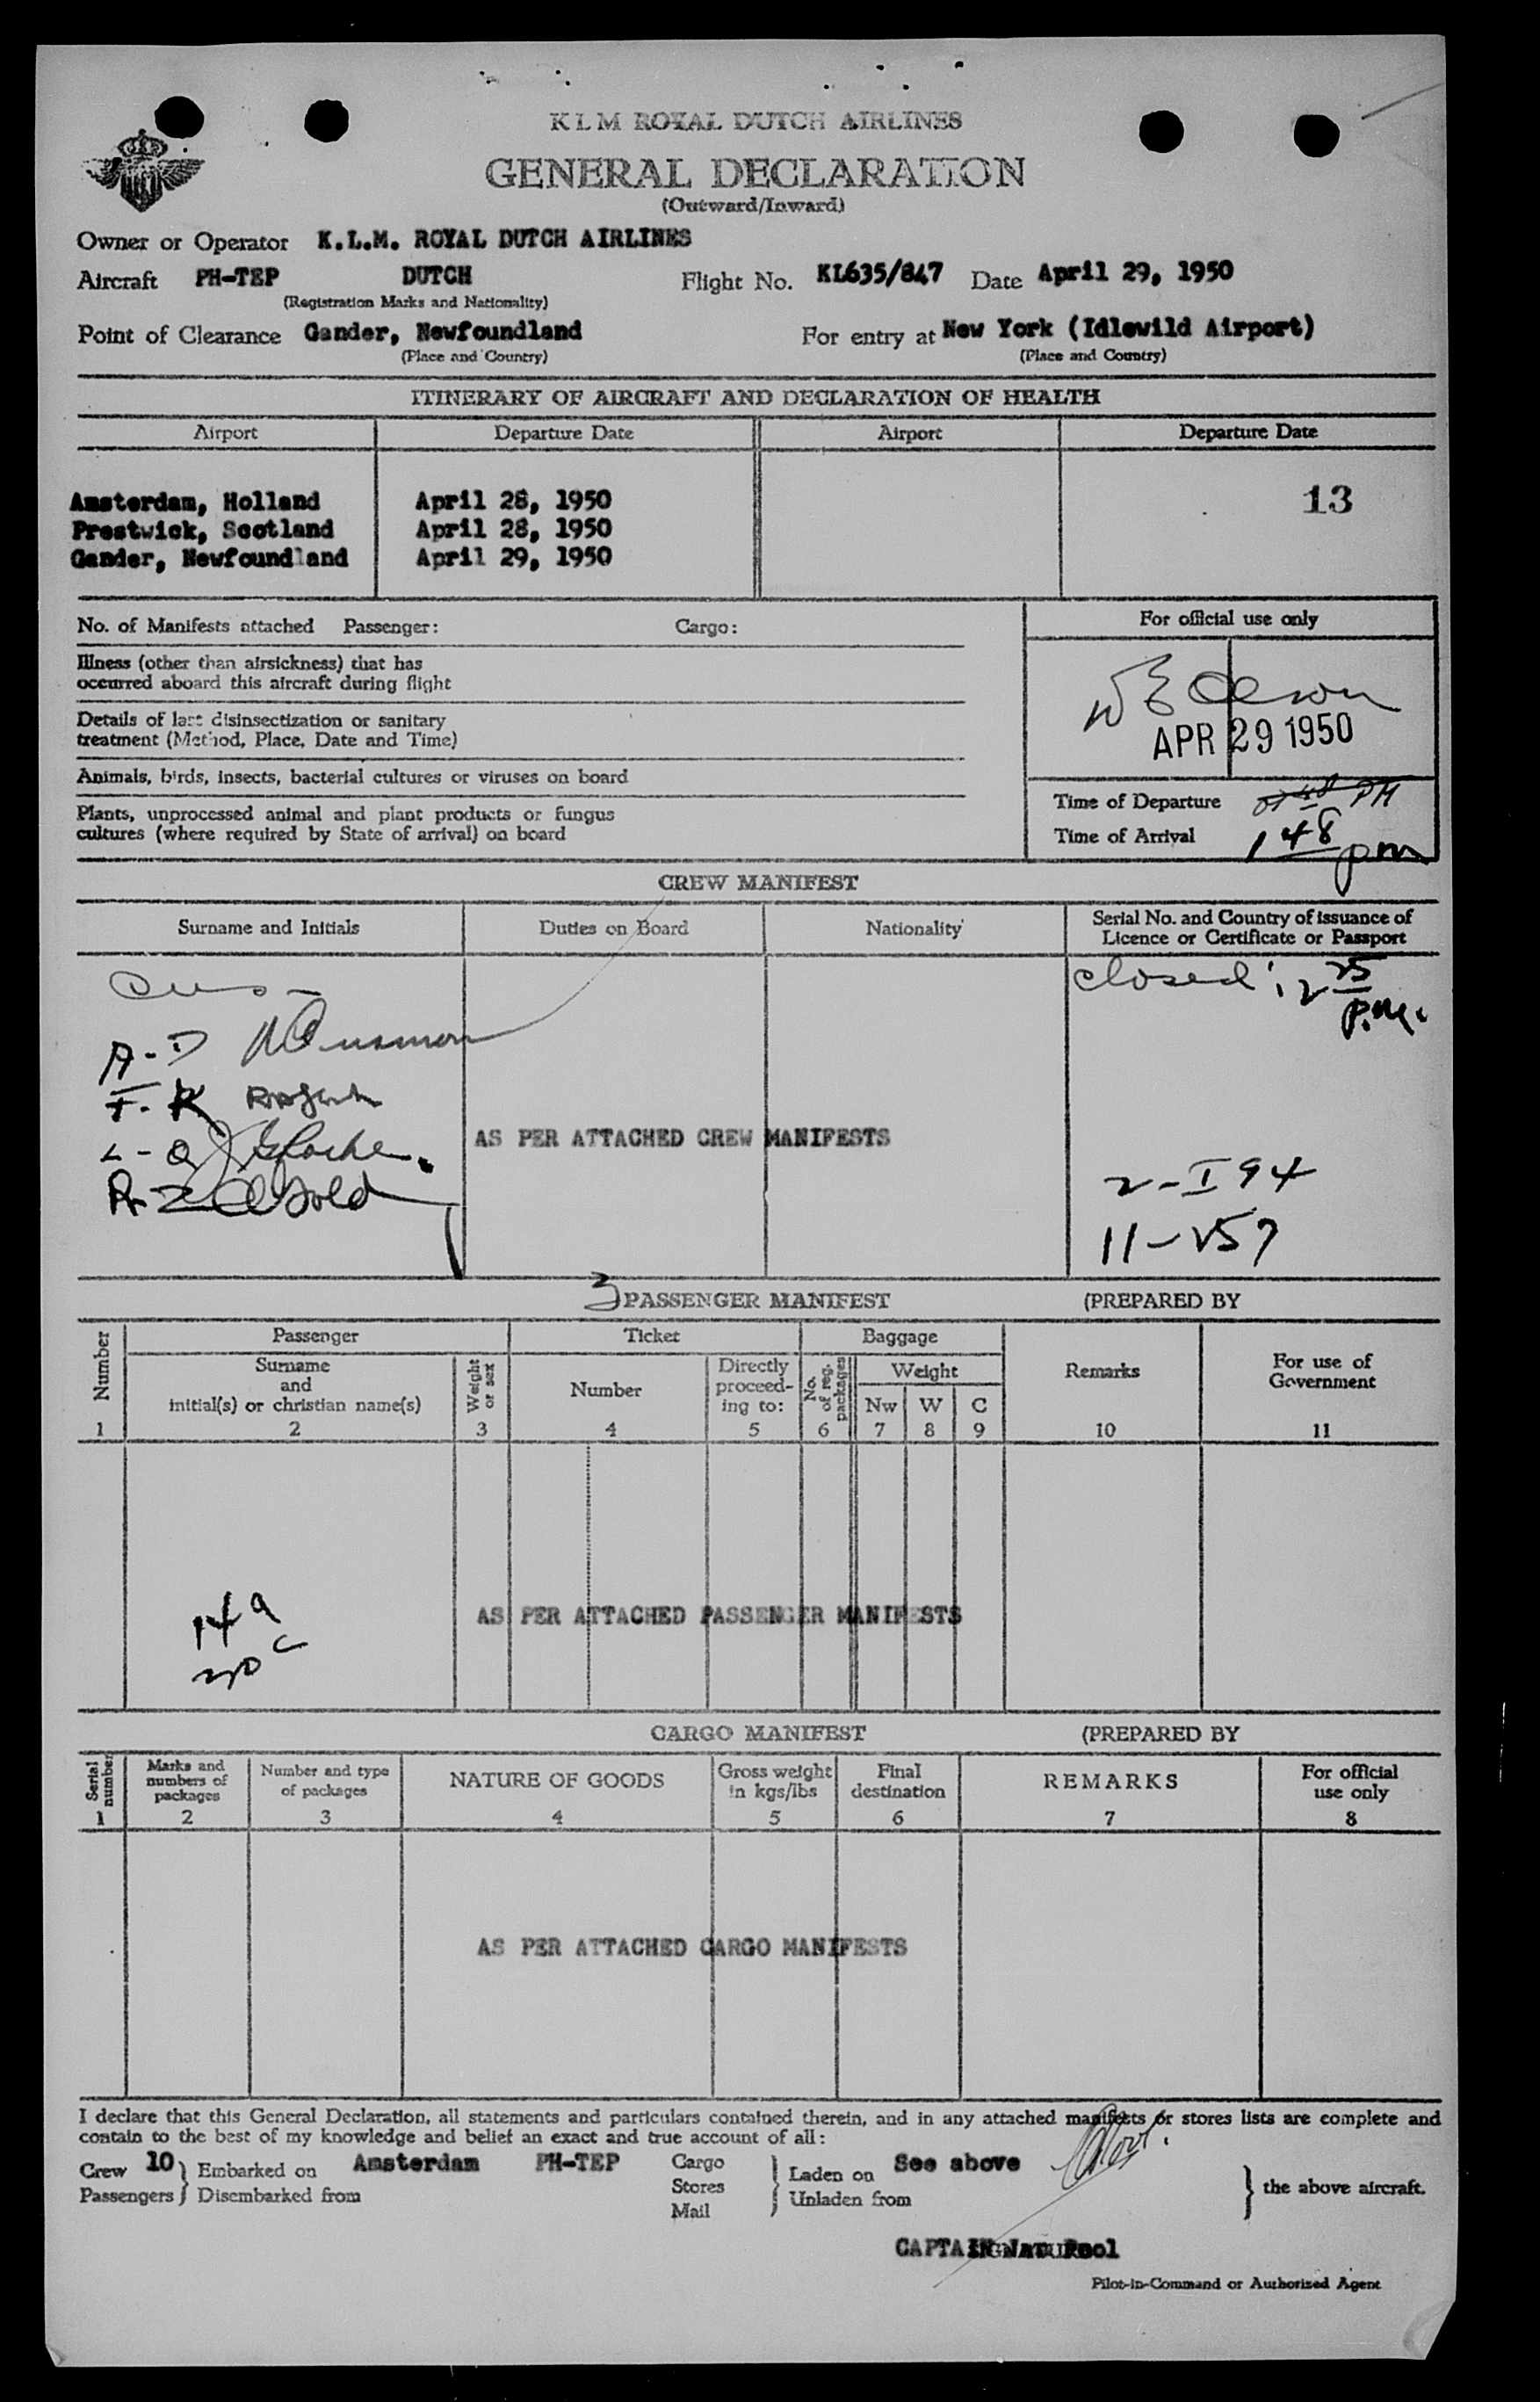 KLM ROYAL DUTCH AIRLINES
GENERAL DECLARATION
(Outward/Inward)
Owner or Operator K.L.M. ROYAL DUTCH AIRLINES
Aircraft PH-TEP DUTCH Flight No. KL635/847 Date April 29, 1950
(Registration Marks and Nationality)
Point of Clearance Gander, Newfoundland For entry at New York (Idlewild Airport)
(Place and Country) (Place and Country)
ITINERARY OF AIRCRAFT AND DECLARATION OF HEALTH
Airport Departure Date Airport Departure Date
Amsterdam, Holland April 28, 1950 13
Prestwick, Scotland April 28, 1950
Gander, Newfoundland April 29, 1950
No. of Manifests attached Passenger: Cargo: For official use only
Illness (other than airsickness) that has
occurred aboard this aircraft during flight
Details of last disinsectization or sanitary
treatment (Method, Place, Date and Time)
W E Olson
APR 29 1950
Animals, birds, insects, bacterial cultures or viruses on board
Plants, unprocessed animal and plant products or fungus
cultures (where required by State of arrival) on board
Time of Departure PM
Time of Arrival 1 48 pm
CREW MANIFEST
Surname and Initials Duties on Board Nationality Serial No. and Country of issuance of
Licence or Certificate or Passport
closed: 12 25
P.M.
A-D
F-K
L-Q
R-Z
AS PER ATTACHED CREW MANIFESTS
2-I94
11-257
3 PASSENGER MANIFEST (PREPARED BY
Number Passenger Ticket Baggage Remarks For use of
Government
Surname
and
initial(s) or christian name(s)
Weight or sex
Number
Directly
proceed-
ing to:
No. of reg. packages
Weight
Nw W C
1 2 3 4 5 6 7 8 9 10 11
14 a
20 c
AS PER ATTACHED PASSENGER MANIFESTS
CARGO MANIFEST (PREPARED BY
Serial number
Marks and
numbers of
packages
Number and type
of packages
NATURE OF GOODS
Gross weight
in kgs/lbs
Final
destination
REMARKS
For official
use only
1 2 3 4 5 6 7 8
AS PER ATTACHED CARGO MANIFESTS
I declare that this General Declaration, all statements and particulars contained therein, and in any attached manifests or stores lists are complete and
contain to the best of my knowledge and belief an exact and true account of all:
Crew 10 } Embarked on Amsterdam PH-TEP Cargo } Laden on See above } the above aircraft.
Passengers } Disembarked from Stores } Unladen from
Mail
CAPTAIN Pool
Pilot-in-Command or Authorized Agent